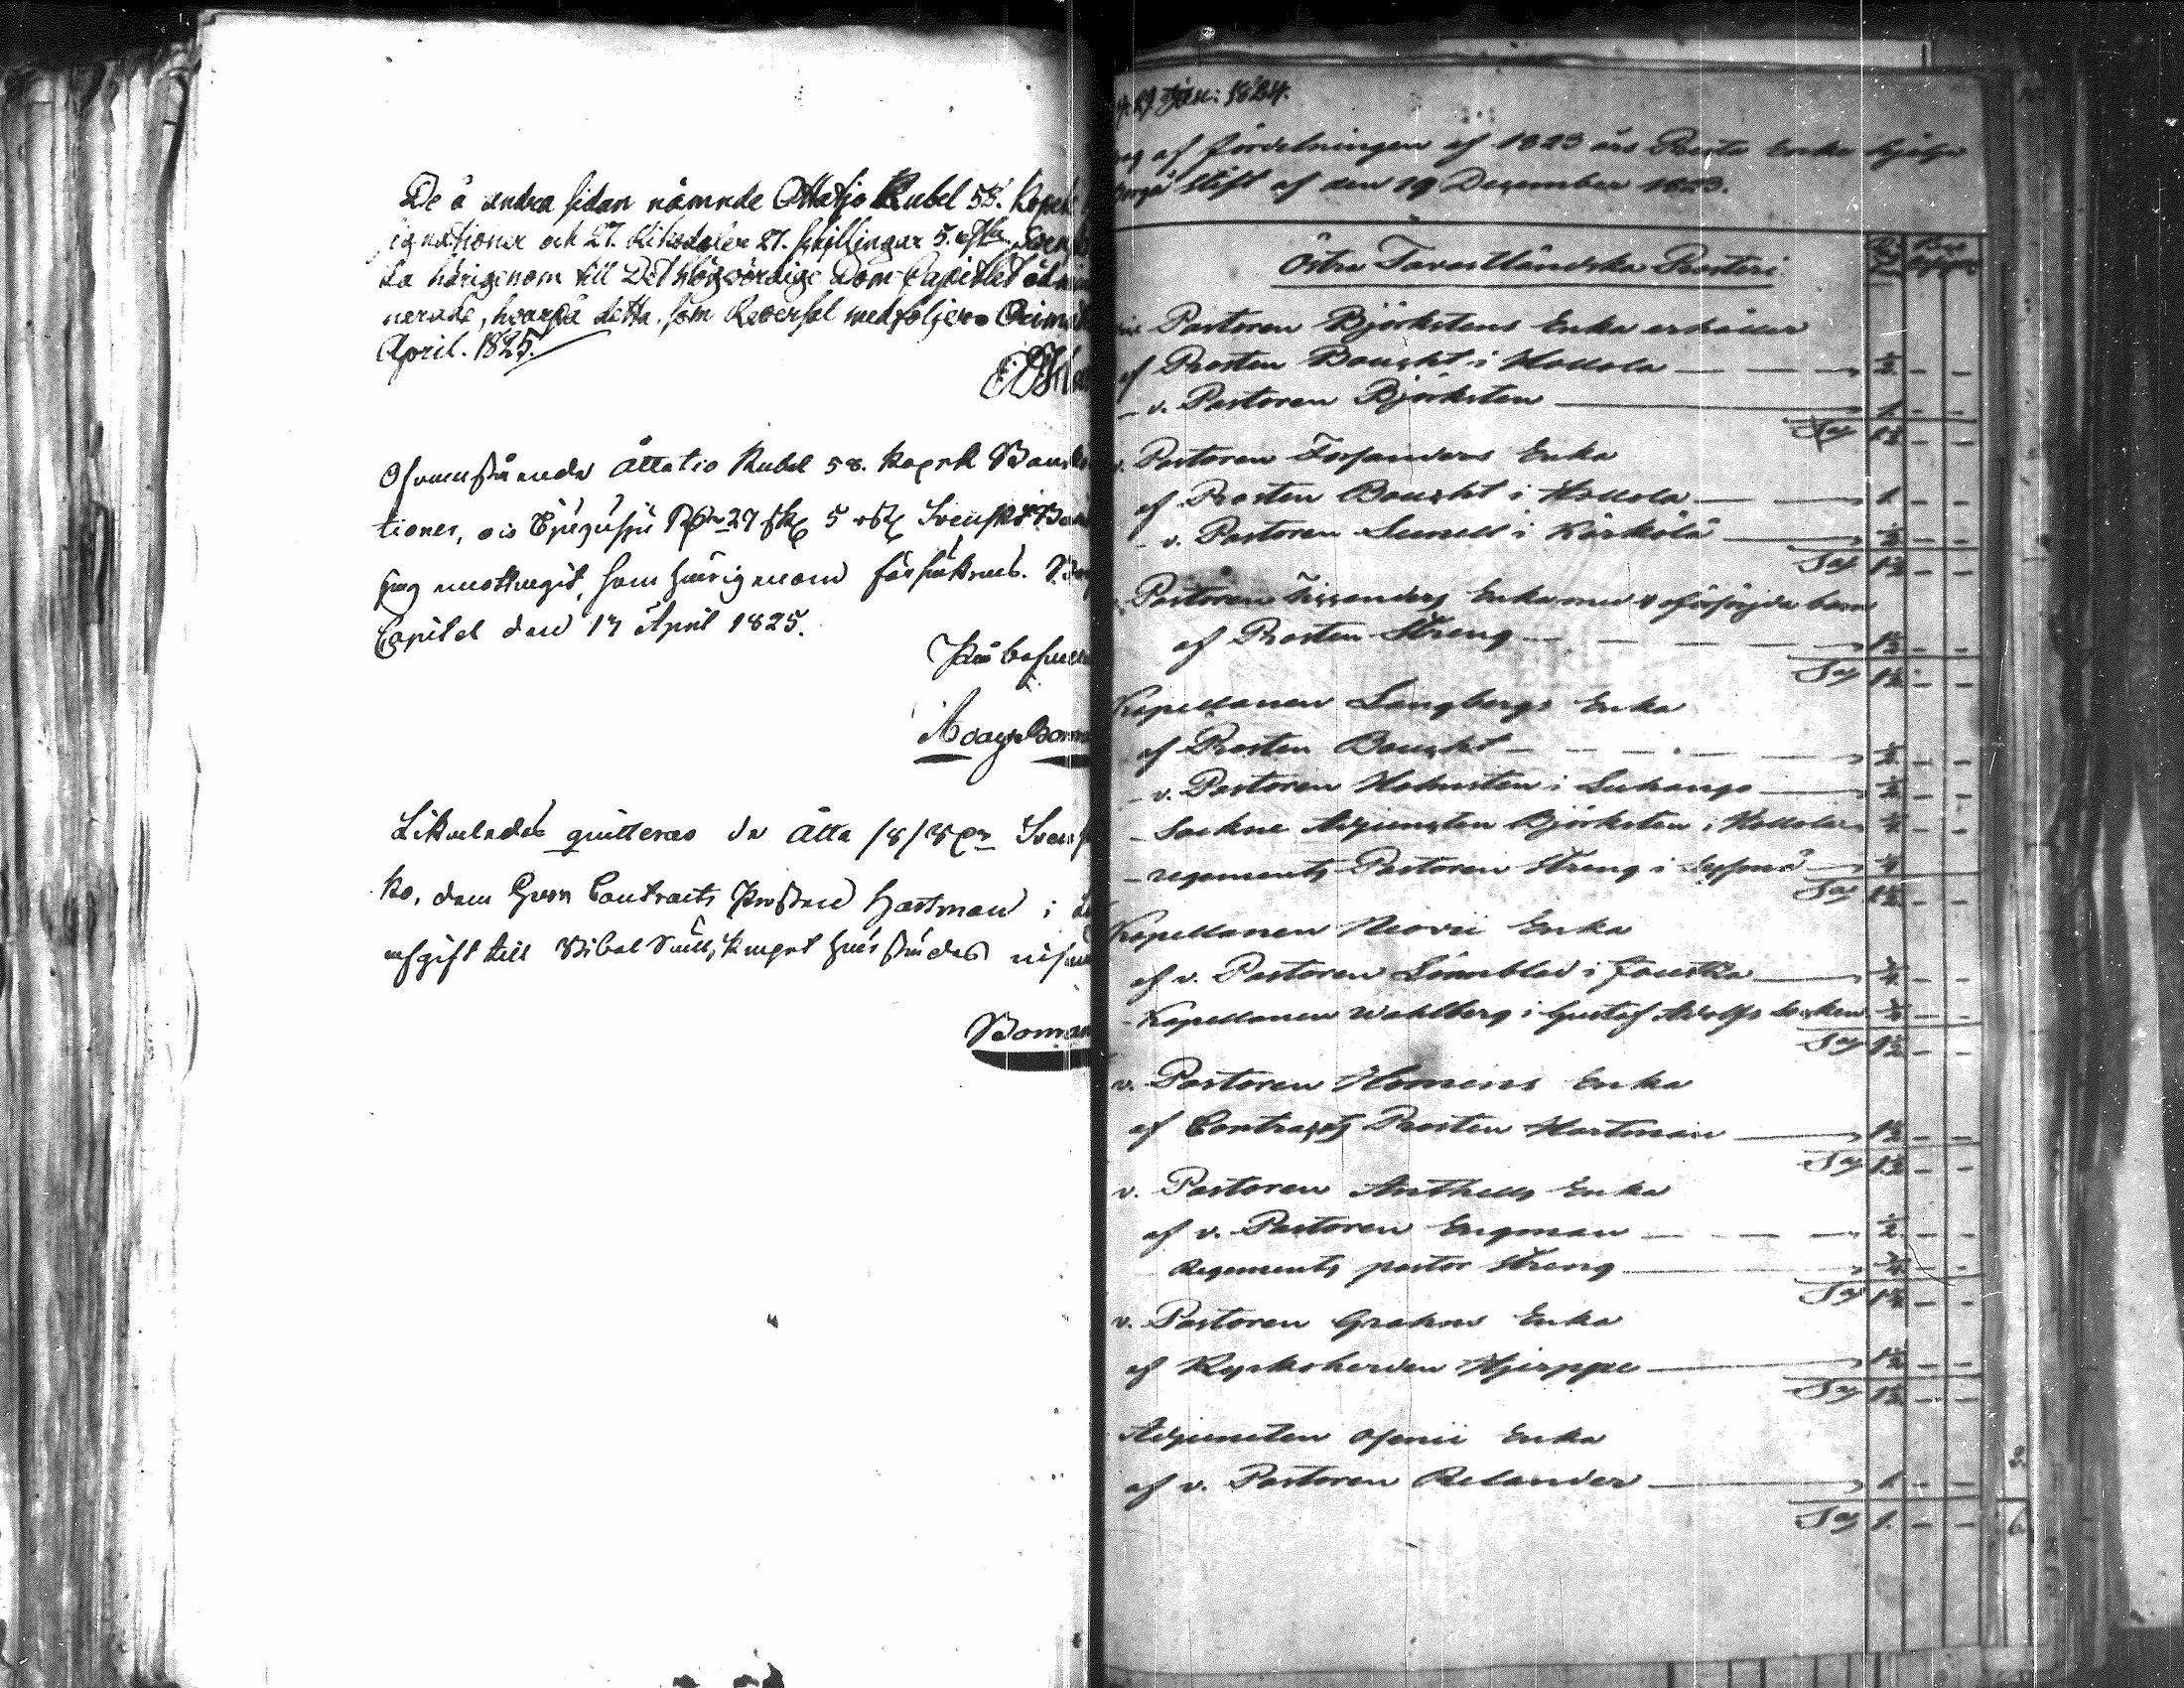 De å andra sidan nämnde Ottatjo Rubel 58. Kopek
ignationer och 27. Riksdaler 27. skillingar 5.
da härigenom till Det Högvördige Dom Capitlet
nerade, hvarpå detta som Reversal medföljer
April. 1825.
Ofvanstående Åttatio Rubel 58. kopek Banko
tioner, ois Tjugusju Rdr 27 sk 5 rst Svenskt
jag emottagit, som härigenom försäkras.
Capitel den 17 April 1825.
Adayr Borma
Likaledes quitteras de Åtta /8/ Rdr Svensk
ko, dem Herr Contracts Prosten Hartman i
afgift till Bibel Sällskapet
Borma
29 Jan: 1824.
af fördelningen af 1823 års Prosta Enke hjelp
Borgå Stift af den 19 December 1823.
Östra Tavastländska Prosteri
Pastoren Björkstens Enka erhåller
af Prosten Bonsht i Hollola — — — ½ — —
- v. Pastoren Björksten — 1. — —
Sa 1½ — —
v. Pastoren Forsanders Enka
af Prosten Bonsht i Hollola — — 1. — —
- v. Pastoren Sunell i Kärkölä — ½ — —
Sa 1½ — —
Pastoren Zissanders Enka med oförsörjda barn
af Prosten Streng — — — — 1½ — —
Sa 1½ — —
Kapellanen Langbergs Enka
af Prosten Bonsht — — — — ½ — —
- v. Pastoren Holmsten i Luhango — ½ — —
- Sockne Adjuncten Björksten i Hollola ¼ — —
- regements Pastoren Streng i Sysmä — ¼ — —
Sa 1½ — —
Kapellanen Neovii Enka
af v. Pastoren Lönnblad i Joutsa — ¾ — —
- Kapellanen Wahlberg i Gustaf Adolfs Socken ¾ — —
Sa 1½ — —
v. Pastoren Homens Enka
af Contracts Prosten Hartman — 1½ — —
Sa 1½ — —
v. Pastoren Anthells Enka
af v. Pastoren Engman — — — ½ — —
Regements pastor Streng — ¾ — —
Sa 1¼ — —
v. Pastoren Grahns Enka
af Kyrkoherden Hjerppe — 1½ — —
Sa 1½ — —
Adjuncten Ofonii Enka
af v. Pastoren Relander — 1 — —
Sa 1. — —